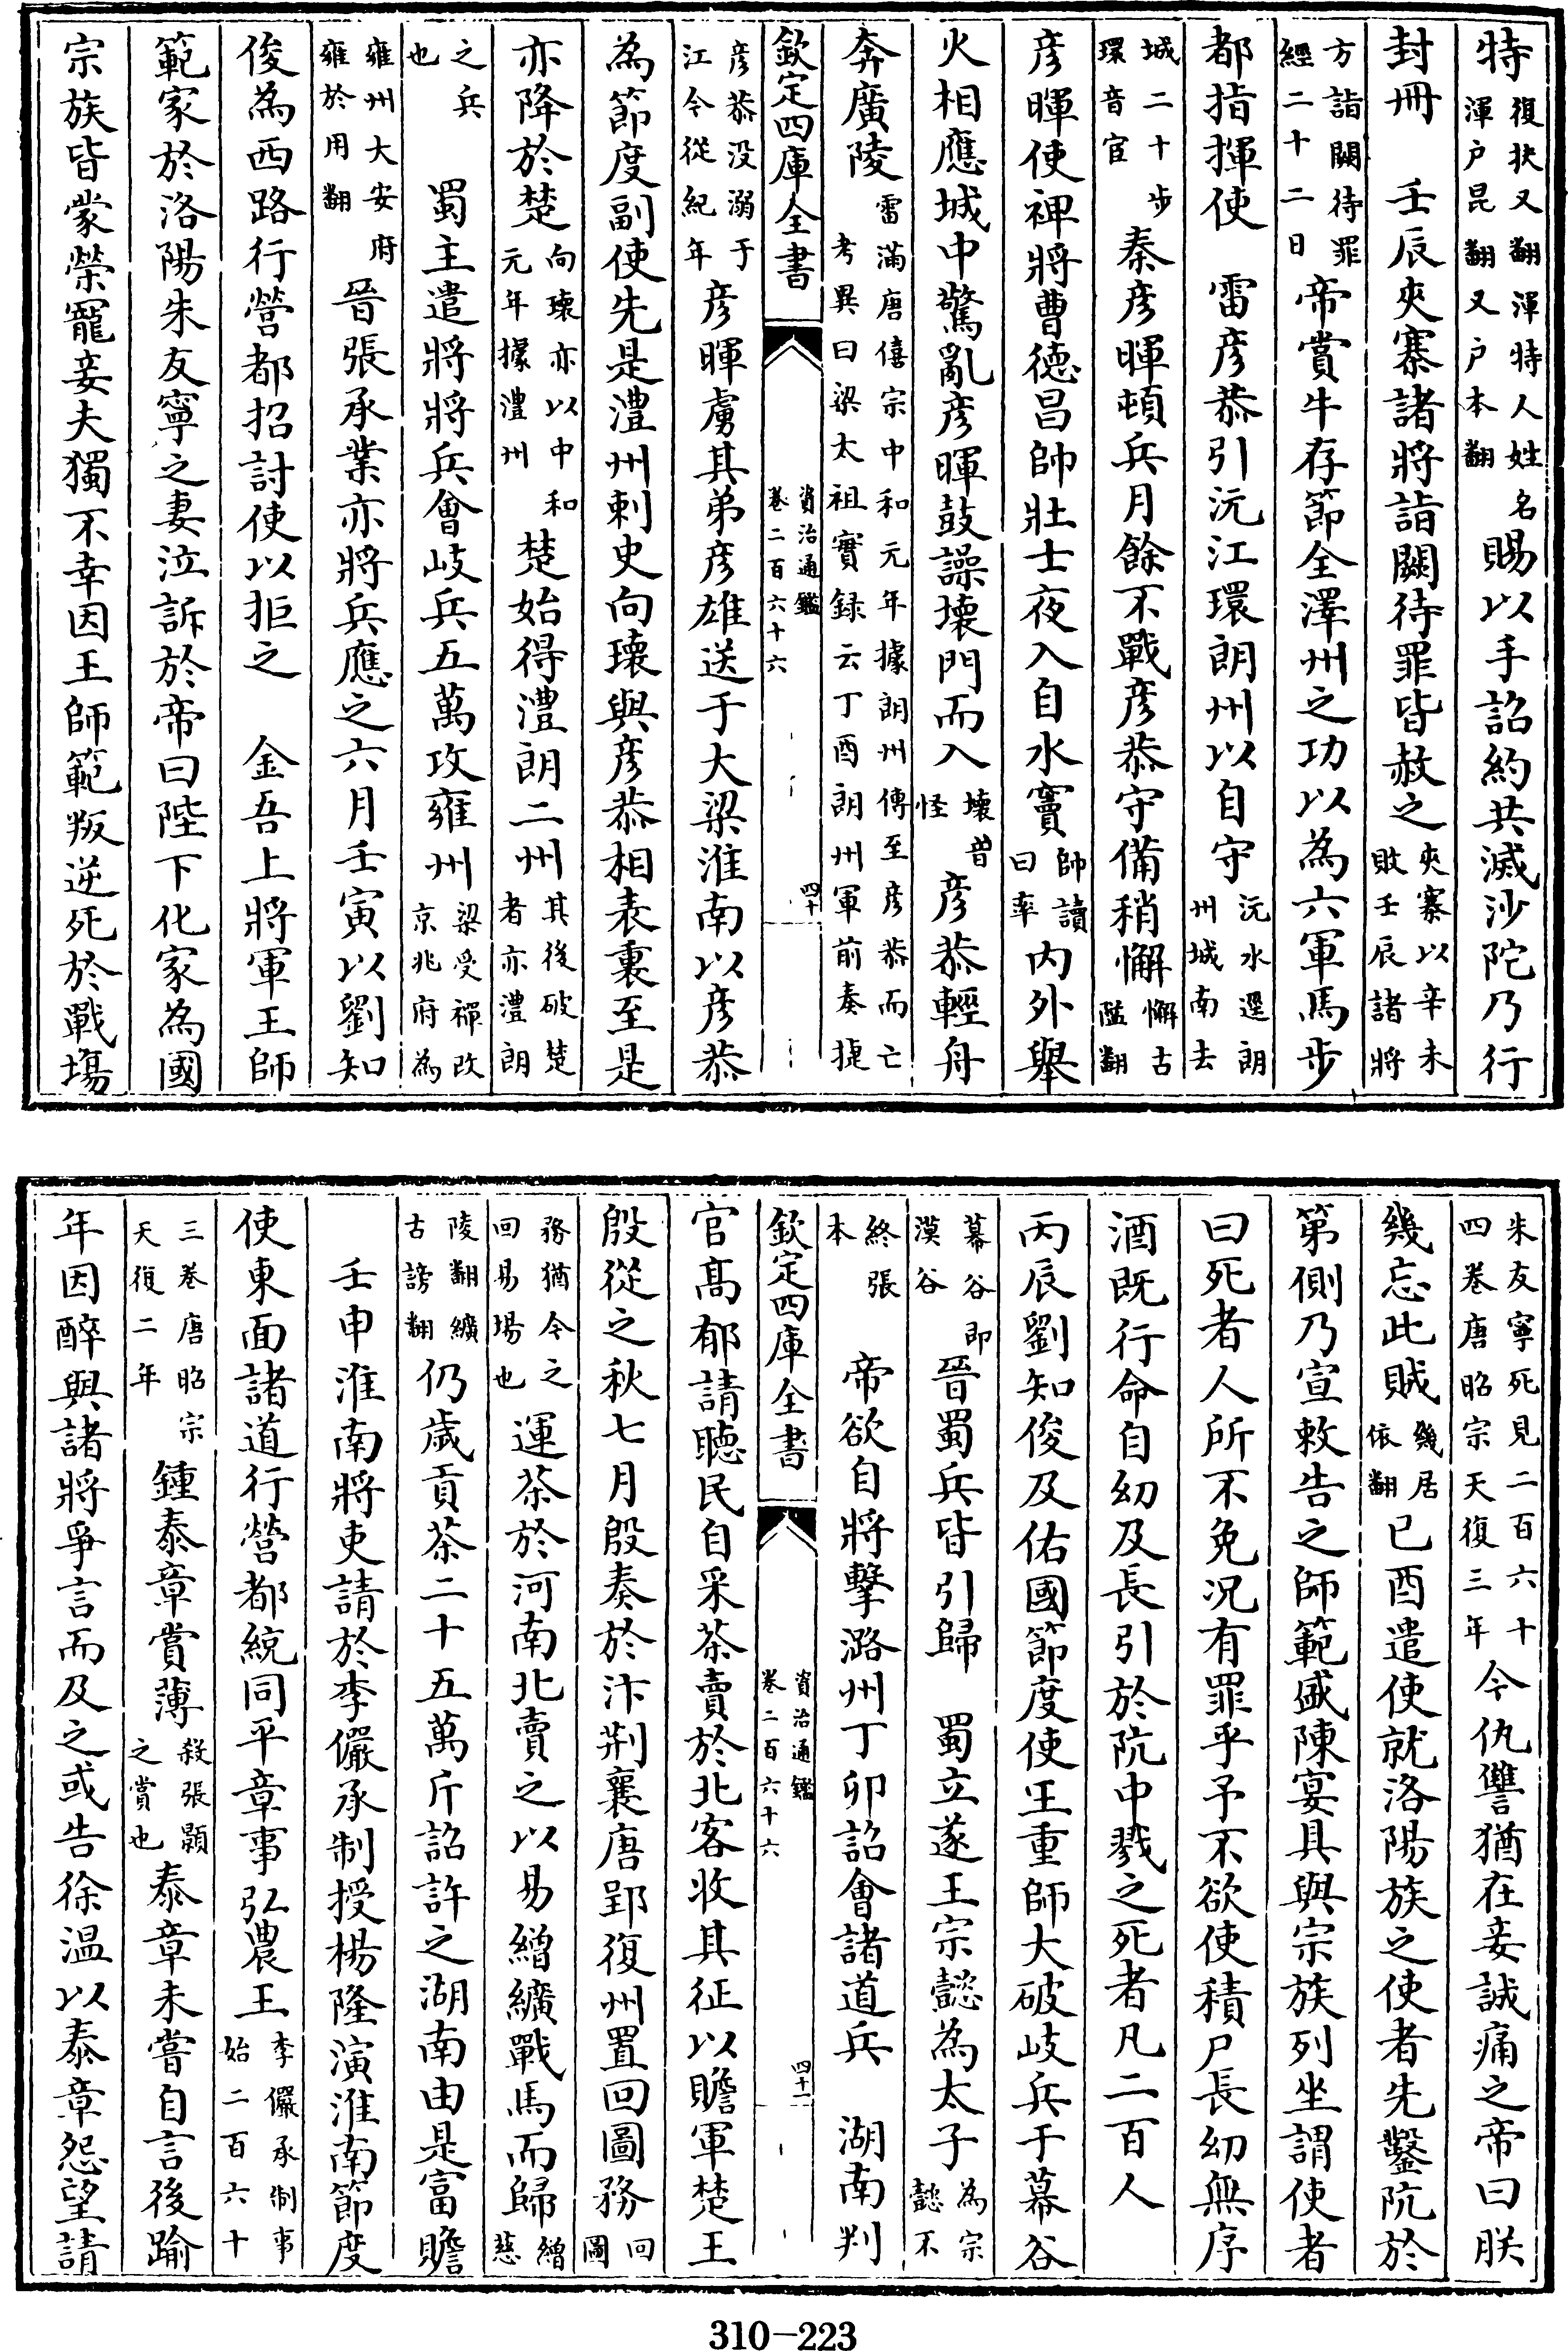 特復扶又翻渾特人姓名渾户昆翻又户本翻賜以手詔約共滅沙陀乃行
封冊　壬辰夾寨諸將詣闕待罪皆赦之夾寨以辛未敗壬辰諸將
方詣闕待罪經二十二日帝賞牛存節全澤州之功以為六軍馬步
都指揮使　雷彦恭引沅江環朗州以自守沅水逕朗州城南去
城二十步環音宦秦彦暉頓兵月餘不戰彦恭守備稍懈懈古隘翻
彦暉使裨將曹德昌帥壯士夜入自水竇帥讀曰率内外舉
火相應城中驚亂彦暉鼓譟壞門而入壞音怪彦恭輕舟
奔廣陵雷滿唐僖宗中和元年據朗州傳至彦恭而亡考異曰梁太祖實録云丁酉朗州軍前奏捷
欽定四庫全書　資治通鑑卷二百六十六　四十
彦恭没溺于江今從紀年彦暉虜其弟彦雄送于大梁淮南以彦恭
為節度副使先是澧州刺史向瓌與彦恭相表裏至是
亦降於楚向瓌亦以中和元年據澧州楚始得澧朗二州其後破楚者亦澧朗
之兵也　蜀主遣將將兵會岐兵五萬攻雍州梁受禪改京兆府為
雍州大安府雍於用翻晉張承業亦將兵應之六月壬寅以劉知
俊為西路行營都招討使以拒之　金吾上將軍王師
範家於洛陽朱友寧之妻泣訴於帝曰陛下化家為國
宗族皆蒙榮寵妾夫獨不幸因王師範叛逆死於戰塲
朱友寧死見二百六十四卷唐昭宗天復三年今仇讐猶在妾誠痛之帝曰朕
幾忘此賊幾居依翻已酉遣使就洛陽族之使者先鑿阬於
第側乃宣敕告之師範盛陳宴具與宗族列坐謂使者
曰死者人所不免况有罪乎予不欲使積尸長幼無序
酒既行命自幼及長引於阬中戮之死者凡二百人
丙辰劉知俊及佑國節度使王重師大破岐兵于幕谷
幕谷即漠谷晉蜀兵皆引歸　蜀立遂王宗懿為太子為宗懿不
終張本　帝欲自將擊潞州丁卯詔會諸道兵　湖南判
欽定四庫全書　資治通鑑卷二百六十六　四十一
官高郁請聽民自采茶賣於北客收其征以贍軍楚王
殷從之秋七月殷奏於汴荆襄唐郢復州置回圖務回圖
務猶今之回易場也運茶於河南北賣之以易繒纊戰馬而歸繒慈
陵翻纊古謗翻仍歲貢茶二十五萬斤詔許之湖南由是富贍
　壬申淮南將吏請於李儼承制授楊隆演淮南節度
使東面諸道行營都統同平章事弘農王李儼承制事始二百六十
三卷唐昭宗天復二年　鍾泰章賞薄殺張顥之賞也泰章未嘗自言後踰
年因醉與諸將爭言而及之或告徐温以泰章怨望請
310-223